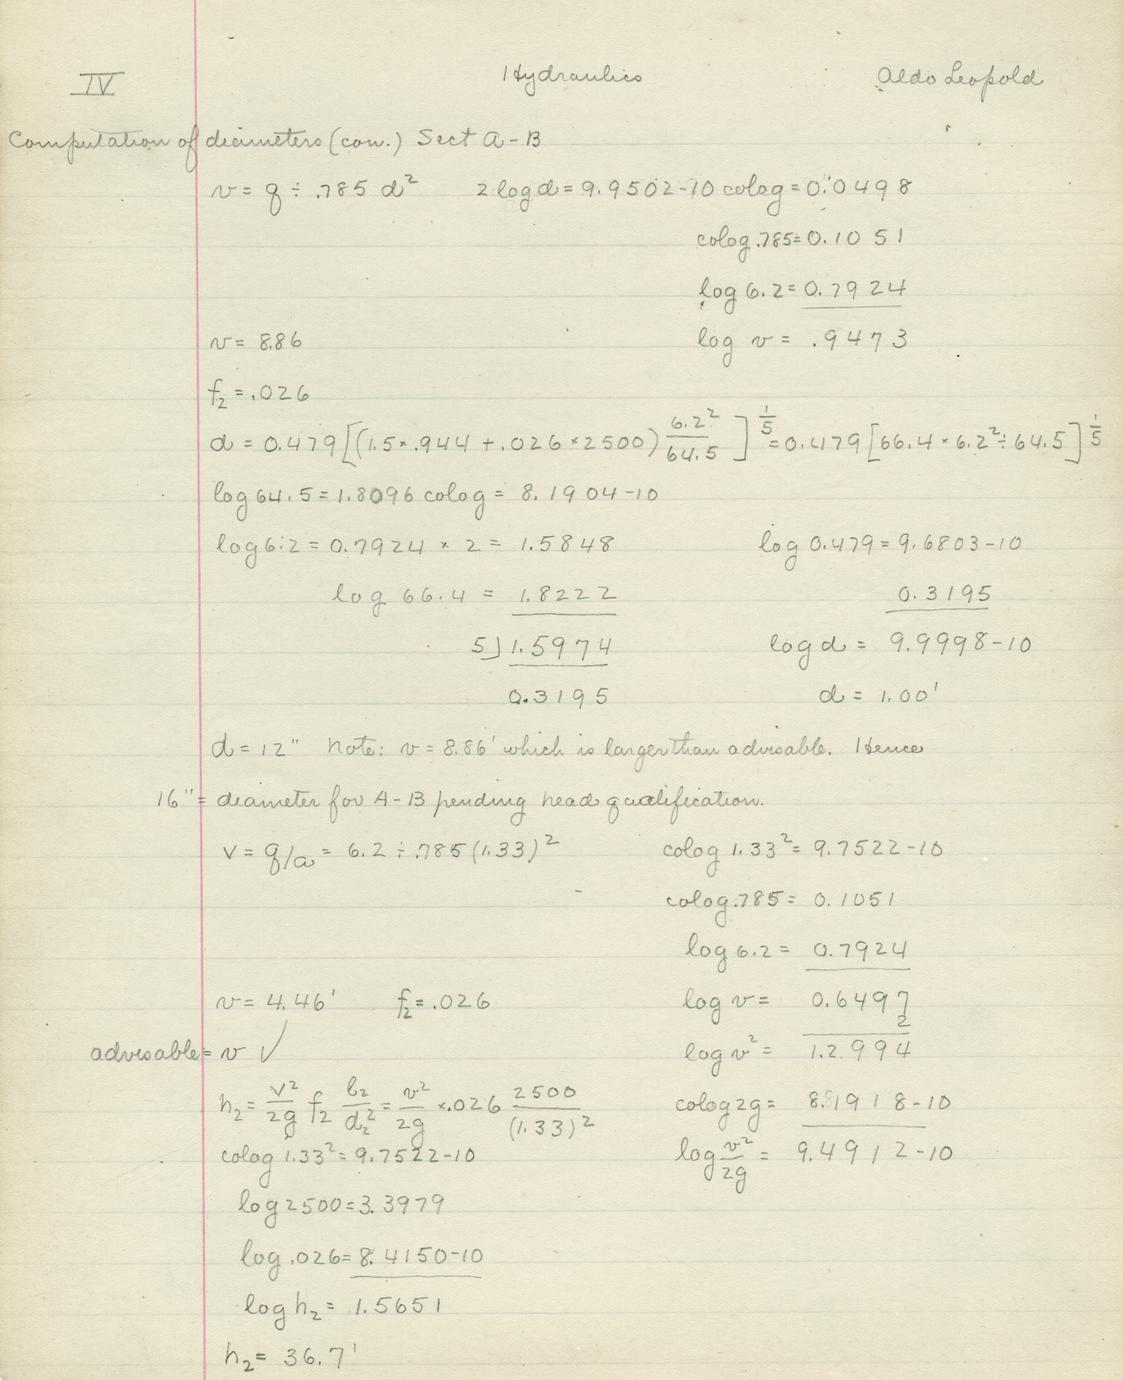 IV Hydraulics Aldo Leopold
Computation of diameters (con.) Sect A-B
v = q ÷ .785 d² 2 log d = 9.9502-10 colog = 0.0498
colog .785 = 0.1051
log 6.2 = 0.7924
v = 8.86 log v = .9473
f₂ = .026
d = 0.479 [(1.5 × .944 + .026 × 2500) 6.2²/64.5]^1/5 = 0.479 [66.4 × 6.2² ÷ 64.5]^1/5
log 64.5 = 1.8096 colog = 8.1904-10
log 6.2 = 0.7924 × 2 = 1.5848 log 0.479 = 9.6803-10
log 66.4 = 1.8222 0.3195
5)1.5974 log d = 9.9998-10
0.3195 d = 1.00'
d = 12" Note: v = 8.86' which is larger than advisable. Hence
16" = diameter for A-B pending head qualification.
v = q/a = 6.2 ÷ .785 (1.33)² colog 1.33² = 9.7522-10
colog .785 = 0.1051
log 6.2 = 0.7924
v = 4.46' f₂ = .026 log v = 0.6497
2
advisable = v ✓ log v² = 1.2994
h₂ = v²/2g f₂ l₂/d₂² = v²/2g × .026 2500/(1.33)² colog 2g = 8.1918-10
colog 1.33² = 9.7522-10 log v²/2g = 9.4912-10
log 2500 = 3.3979
log .026 = 8.4150-10
log h₂ = 1.5651
h₂ = 36.7'